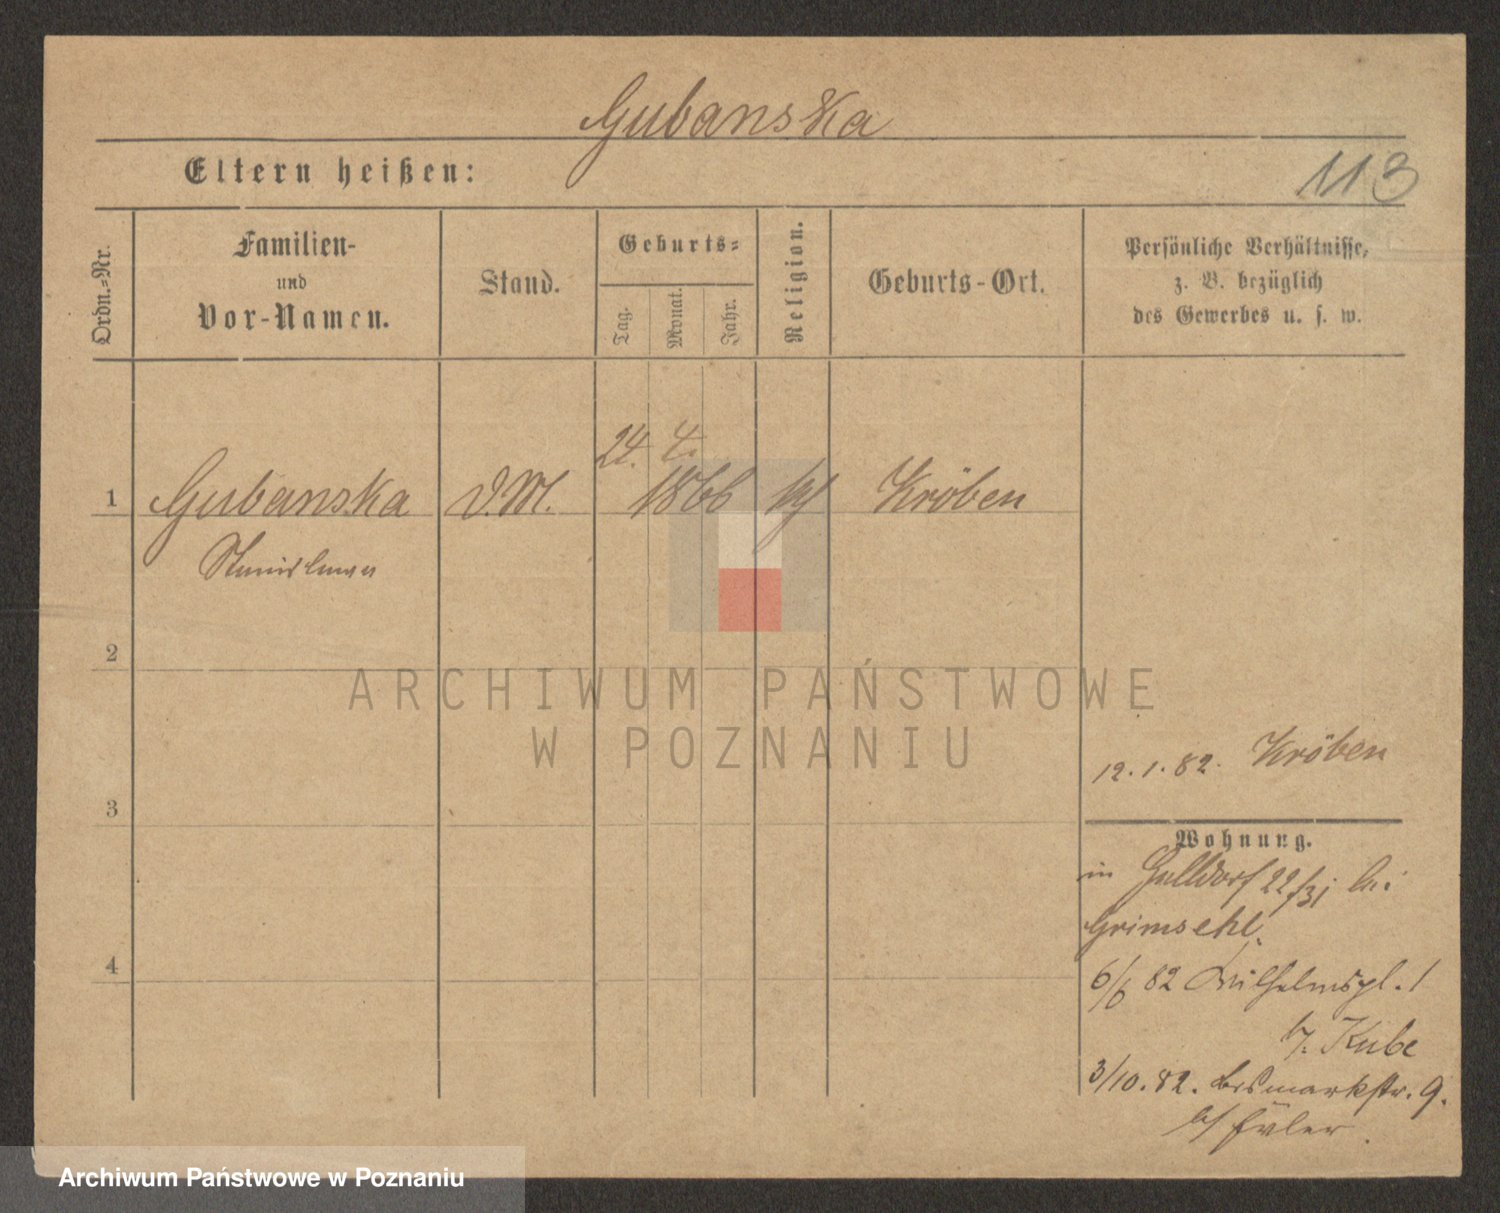 Gubanska
Eltern heißen:
113
Ordn.-Nr.
Familien-
und
Vor-Namen.
Stand.
Geburts-
Tag.
Monat.
Jahr.
Religion.
Geburts-Ort.
Persönliche Verhältnisse,
z. B. bezüglich
des Gewerbes u. s. w.
24. 4.
1 Gubanska D.M. 1866 kf Kröben
2
ARCHIWUM PAŃSTWOWE
W POZNANIU
12.1.82. Kröben
3
Wohnung.
in 22/31 bei
Grimsehl.
4
6/6 82 Wilhelmspl. 1
b/. Kube
3/10.82. Bismarkstr. 9.
b/
Archiwum Państwowe w Poznaniu